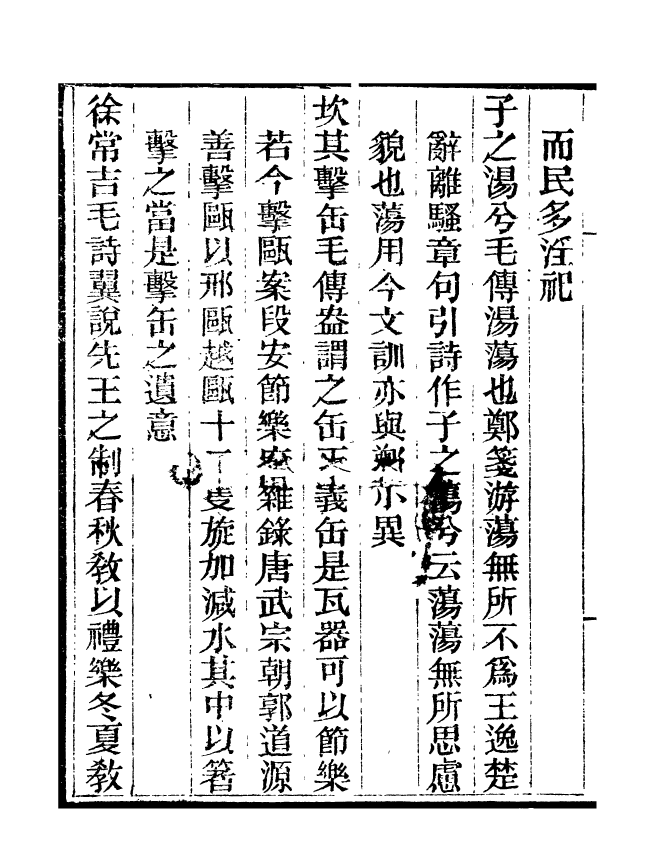 而民多淫祀
子之湯兮毛傳湯蕩也鄭箋游蕩無所不爲王逸楚
辭離騷章句引詩作子之蕩兮云蕩蕩無所思慮
貌也蕩用今文訓亦與鄭不異
坎其擊缶毛傳盎謂之缶正義缶是瓦器可以節樂
若今擊甌案段安節樂府雜錄唐武宗朝郭道源
善擊甌以邢甌越甌十二隻旋加減水其中以箸
擊之當是擊缶之遺意
徐常吉毛詩翼說先王之制春秋敎以禮樂冬夏敎